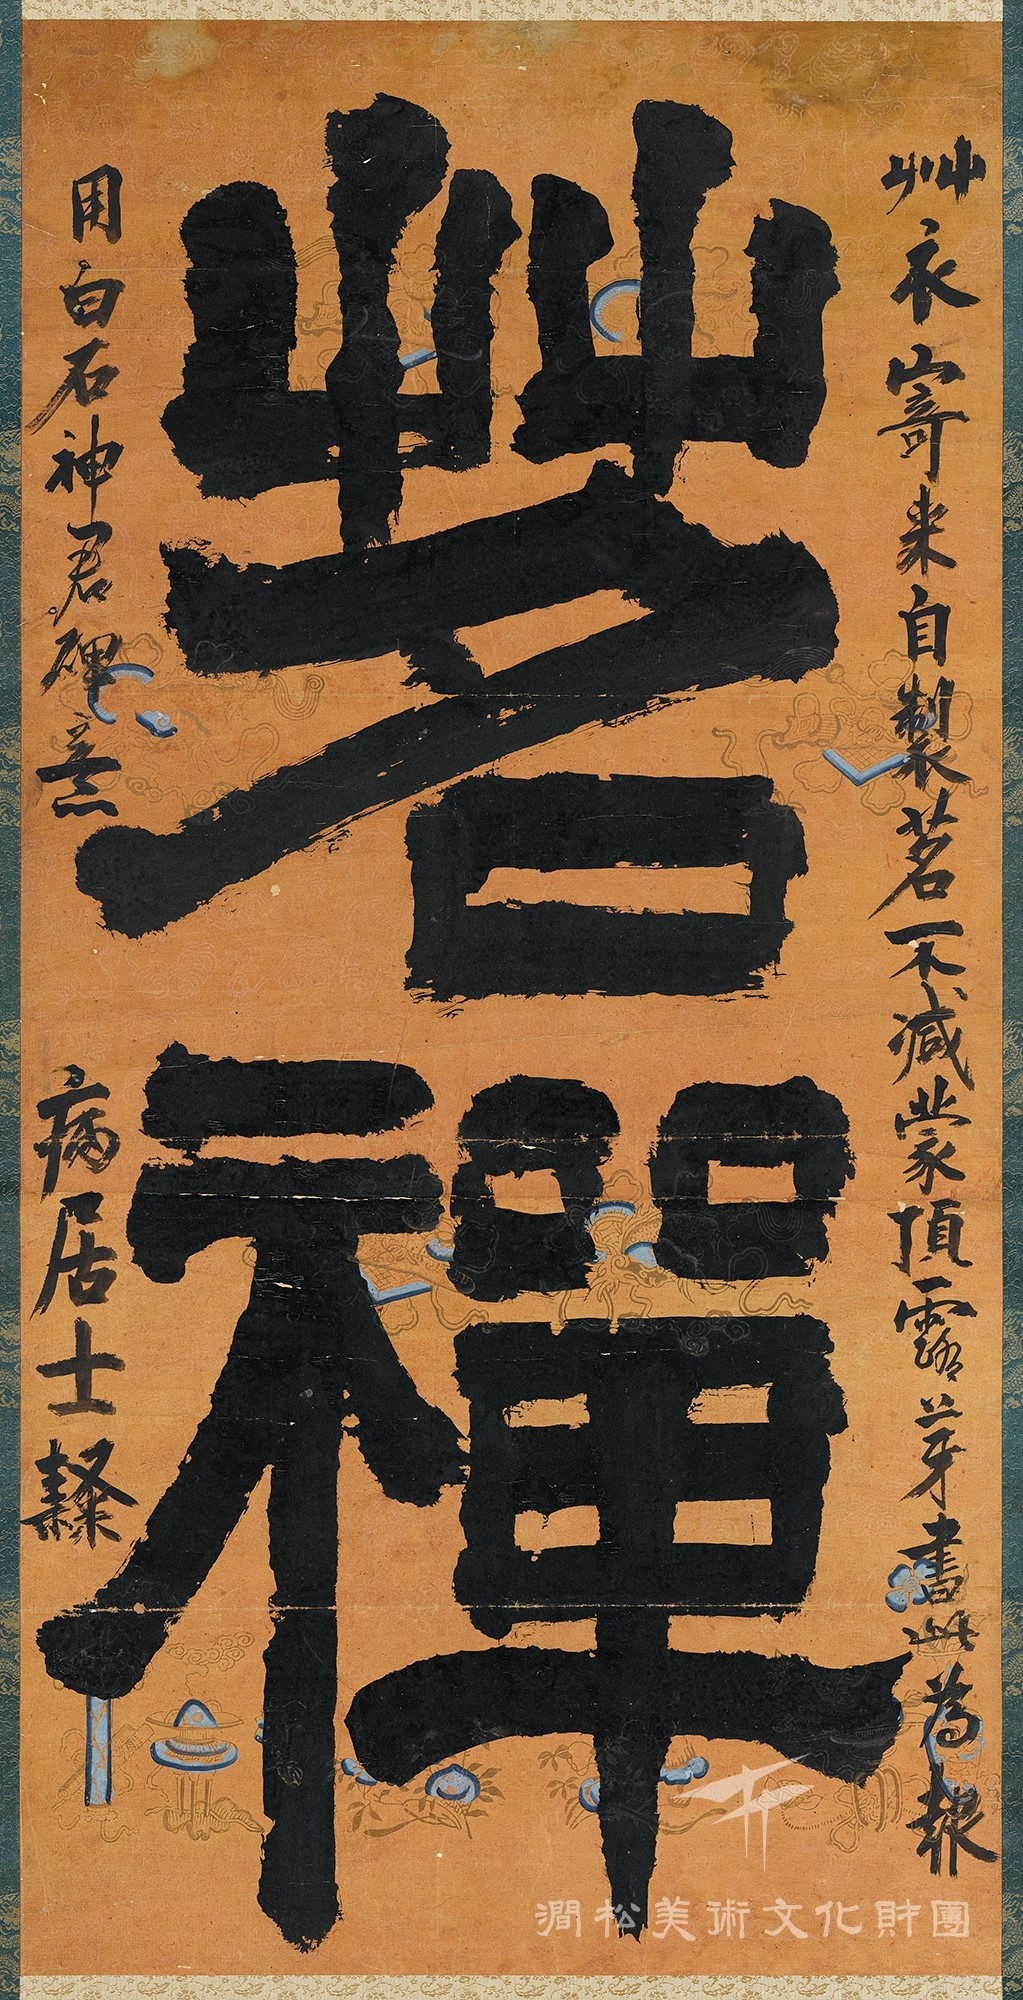 茗禪
艸衣寄來自製茗不減蒙頂露芽書此為報
用白石神君碑意
病居士隷
澗松美術文化財團